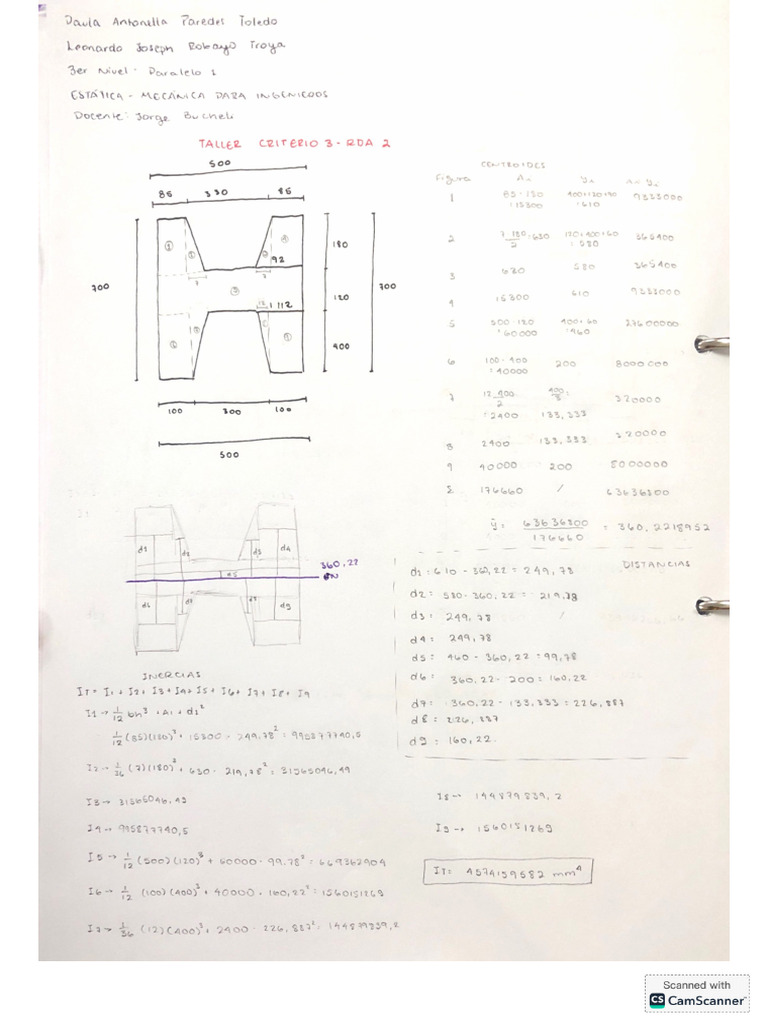 Paula Antonella Paredes Toledo
Leonardo Joseph Robayo Troya
3er Nivel - Paralelo 1
ESTÁTICA - MECÁNICA PARA INGENIEROS
Docente: Jorge Bucheli
TALLER CRITERIO 3 - RDA 2
500
85 330 85
700
180
120
400
700
1 2 92 4
7 7
3
12 112
100 300 100
500
CENTROIDES
Figura An yn An yn
1 85 · 180 : 15300 400+120+90 : 610 9333000
2 7 · 180 / 2 = 630 120+400+60 : 580 365400
3 630 580 365400
4 15300 610 9333000
5 500 · 120 : 60000 400+60 : 460 27600000
6 100 · 400 : 40000 200 8000000
7 12 · 400 / 2 : 2400 400/3 : 133,333 320000
8 2400 133,333 320000
9 40000 200 8000000
Σ 176660 / 63636800
ȳ: 63636800 / 176660 = 360,2218952
d1 d2 d3 d4
360.22
d5 EN
d6 d7 d7 d9
DISTANCIAS
d1: 610 - 360,22 = 249,78
d2: 580 - 360,22 = 219,78
d3: 249,78 /
d4: 249,78
d5: 460 - 360,22 = 99,78
d6: 360,22 - 200 = 160,22
d7: 360,22 - 133,333 = 226,887
d8: 226,887
d9: 160,22
INERCIAS
IT = I1 + I2 + I3 + I4 + I5 + I6 + I7 + I8 + I9
I1 → 1/12 bh³ + A1 + d1²
1/12 (85)(180)³ + 15300 · 249,78² = 995877740,5
I2 → 1/36 (7)(180)³ + 630 · 219,78² = 31565046,49
I3 → 31565046,49
I4 → 995877740,5
I5 → 1/12 (500)(120)³ + 60000 · 99.78² = 669362904
I6 → 1/12 (100)(400)³ + 40000 · 160,22² = 1560151269
I7 → 1/36 (12)(400)³ + 2400 · 226,887² = 144879839,2
I8 → 144879839,2
I9 → 1560151269
IT = 4574159582 mm⁴
Scanned with
CS CamScanner